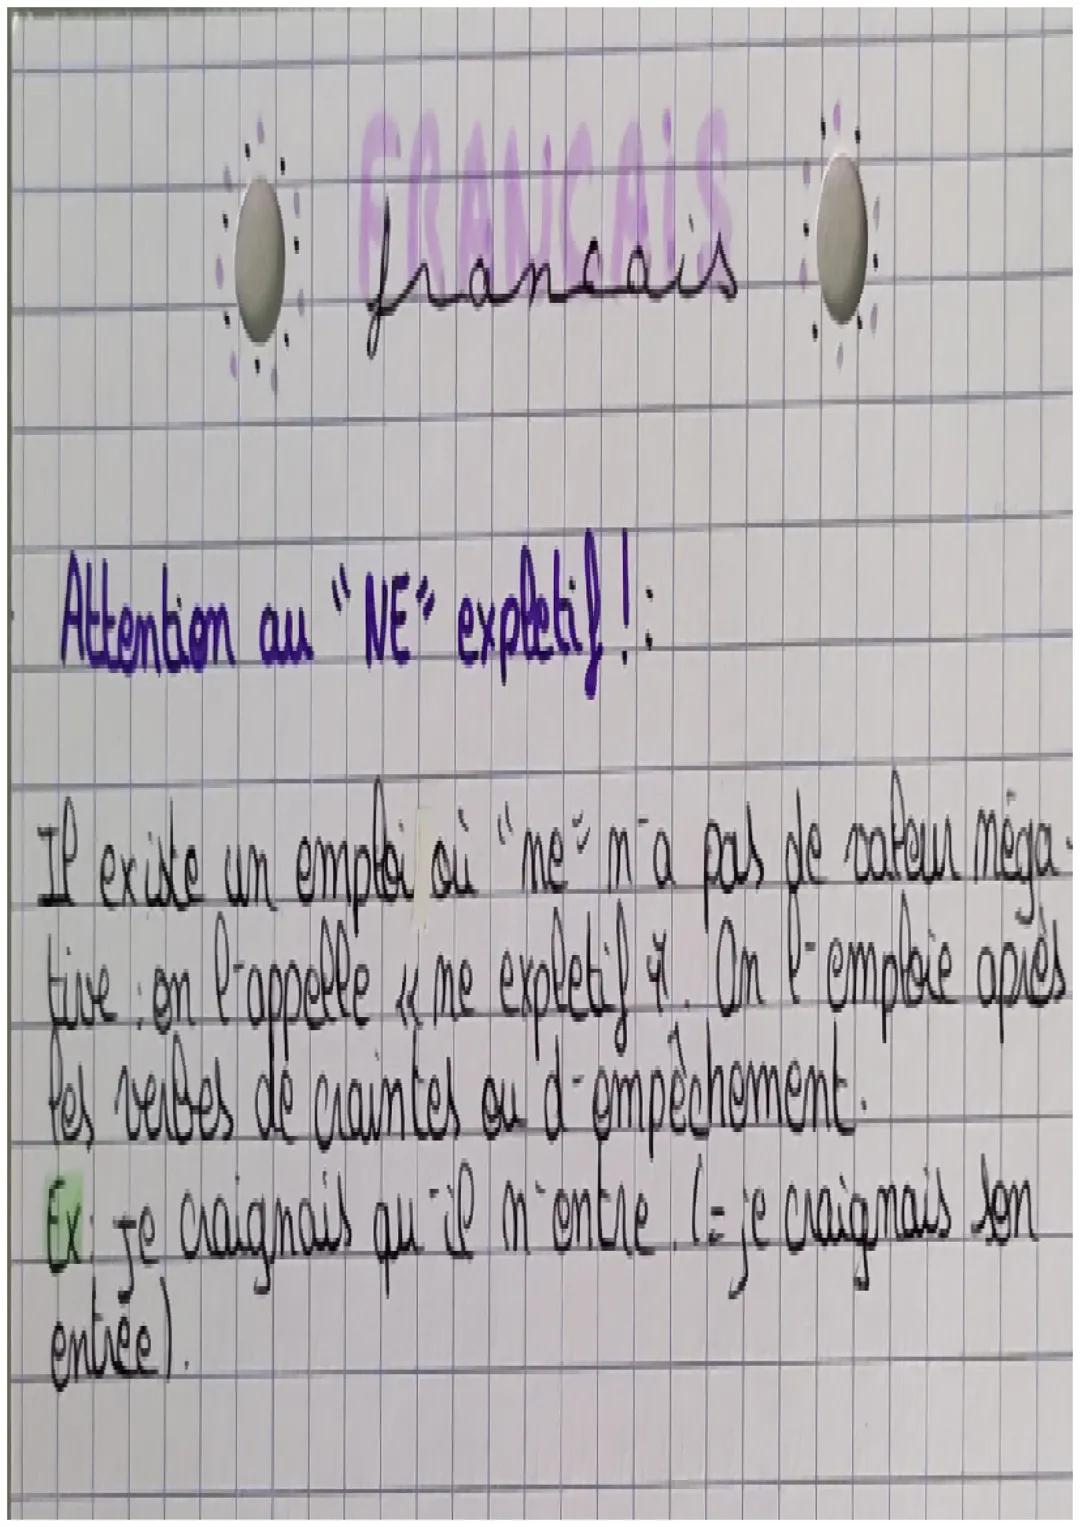 FRANCAIS
francais
Attention au "NE" expletif ! :
Il existe un emploi où "ne" n'a pas de valeur néga-
tive : on l'appelle « ne expletif ». On l'emploie après
les verbes de craintes ou d'empêchement.
Ex: je craignais qu'il n'entre. (= je craignais son
entrée).